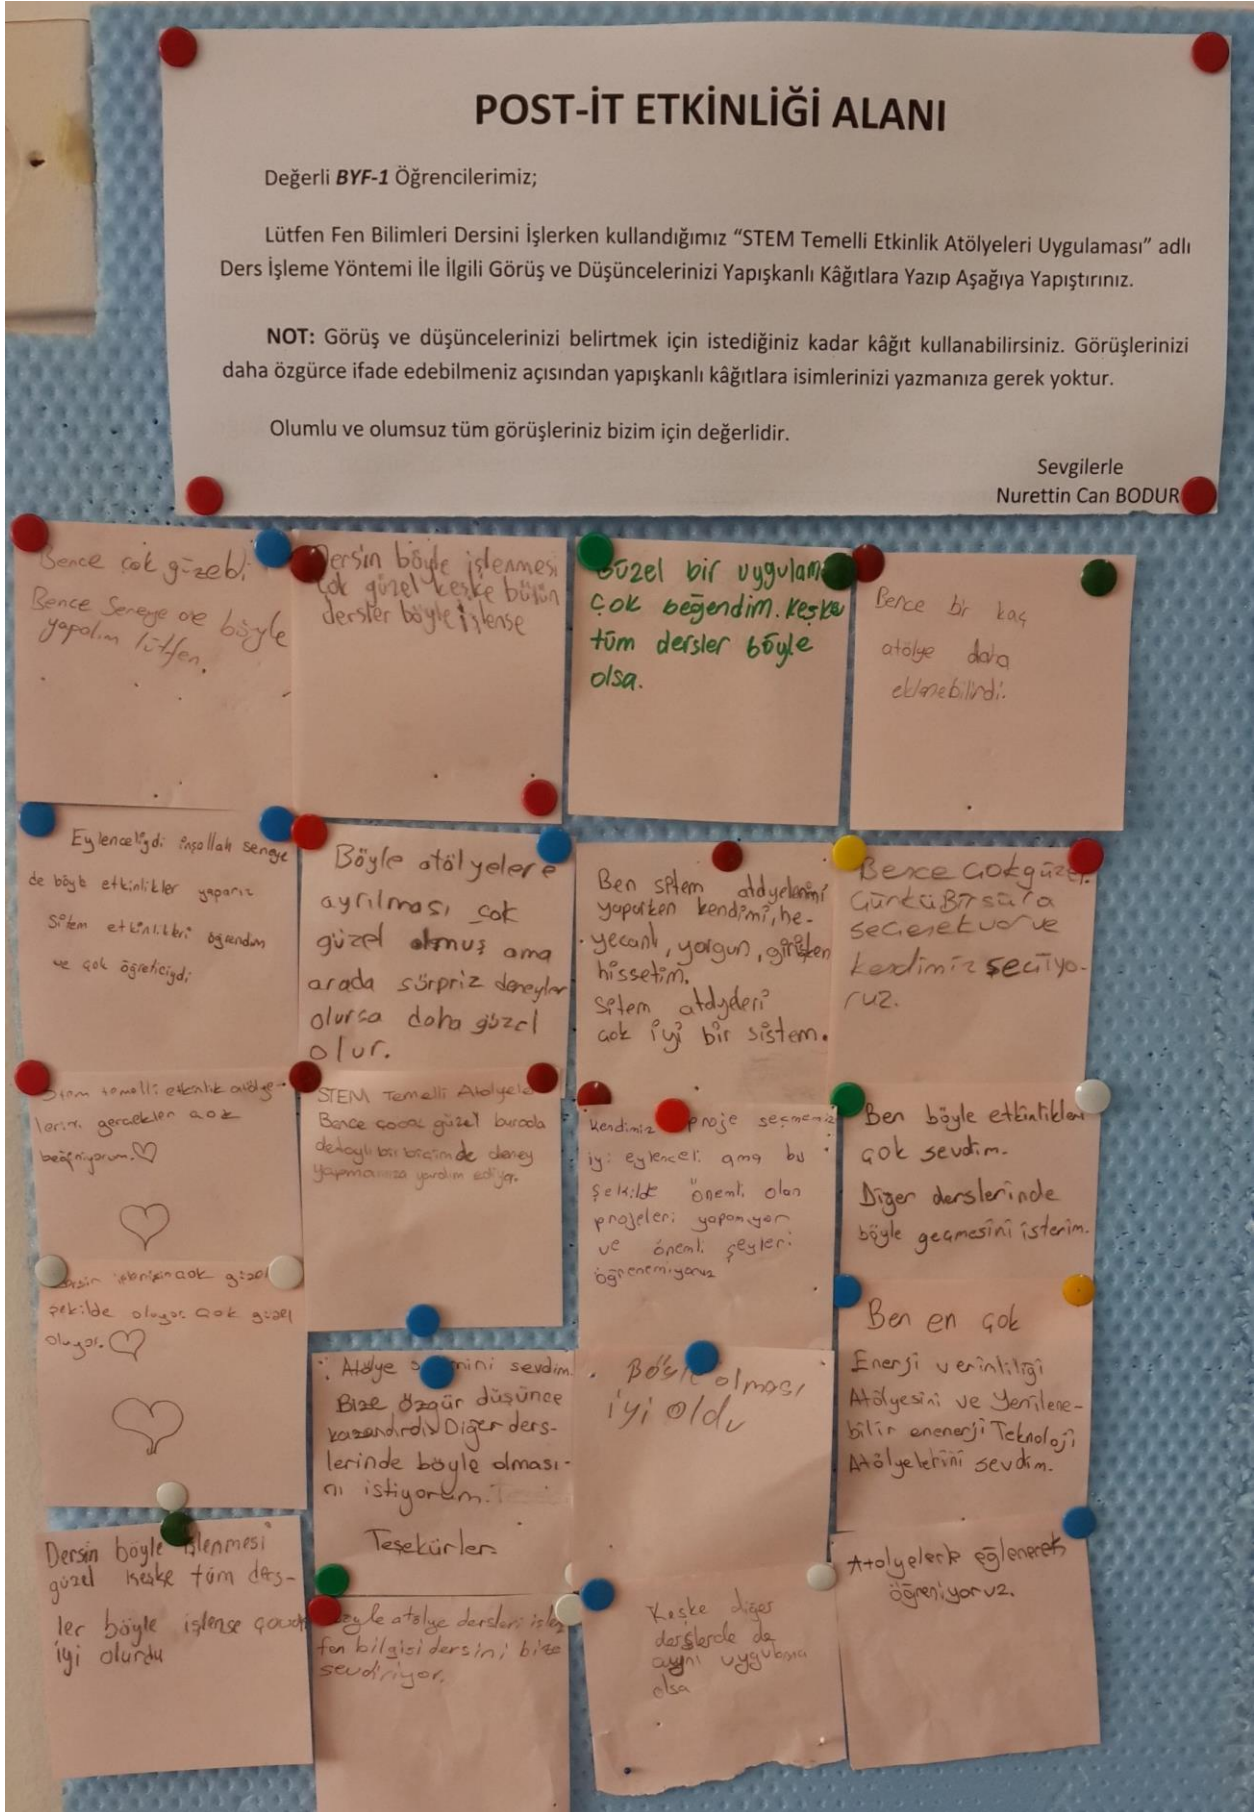 POST-İT ETKİNLİĞİ ALANI
Değerli BYF-1 Öğrencilerimiz;
Lütfen Fen Bilimleri Dersini İşlerken kullandığımız “STEM Temelli Etkinlik Atölyeleri Uygulaması” adlı
Ders İşleme Yöntemi İle İlgili Görüş ve Düşüncelerinizi Yapışkanlı Kâğıtlara Yazıp Aşağıya Yapıştırınız.
NOT: Görüş ve düşüncelerinizi belirtmek için istediğiniz kadar kâğıt kullanabilirsiniz. Görüşlerinizi
daha özgürce ifade edebilmeniz açısından yapışkanlı kâğıtlara isimlerinizi yazmanıza gerek yoktur.
Olumlu ve olumsuz tüm görüşleriniz bizim için değerlidir.
Sevgilerle
Nurettin Can BODUR
Bence çok güzeldi
Bence Seneye de böyle
yapalım lütfen.
Dersin böyle işlenmesi
çok güzel keşke bütün
dersler böyle işlense
Güzel bir uygulama
çok beğendim. Keşke
tüm dersler böyle
olsa.
Bence bir kaç
atölye daha
eklenebilirdi.
Eylenceliydi inşallah seneye
de böyle etkinlikler yaparız
Sitem etkinlikleri öğrendim
ve çok öğreticiydi
Böyle atölyelere
ayrılması çok
güzel olmuş ama
arada sürpriz deneyler
olursa daha güzel
olur.
Ben sitem atölyelerini
yaparken kendimi, he-
yecanlı, yorgun, girişken
hissetim.
Sitem atölyeleri
çok iyi bir sistem.
Bence çok güzel.
Çünkü Bir sürü
seçenek var ve
kendimiz seçiyo-
ruz.
Stem temelli etkinlik atölye-
lerini gerçekten çok
beğniyorum.
STEM Temelli Atölyeler
Bence çooook güzel burada
detaylı bir biçimde deney
yapmamıza yardım ediyor.
Kendimiz proje seçmemiz
iyi eylenceli ama bu
şekilde önemli olan
projeleri yapamıyor
ve önemli şeyleri
öğrenemiyoruz
Ben böyle etkinlikleri
çok sevdim.
Diğer derslerinde
böyle geçmesini isterim.
Dersin çok güzel
şekilde oluyor çok güzel
oluyor.
Atölye sevdim.
Bize özgür düşünce
kazandırdı. Diğer ders-
lerinde böyle olması-
nı istiyorum.
Teşekürler
Böyle olması
iyi oldu
Ben en çok
Enerji verimliliği
Atölyesini ve Yenilene-
bilir enenerji Teknoloji
Atölyelerini sevdim.
Dersin böyle işlenmesi
güzel keşke tüm ders-
ler böyle işlense
iyi olurdu
Böyle atölye dersleri
fen bilgisi dersini bize
sevdiriyor.
Keşke diğer
derslerde de
aynı uygulama
olsa
Atolyelerle eğlenerek
öğreniyoruz.